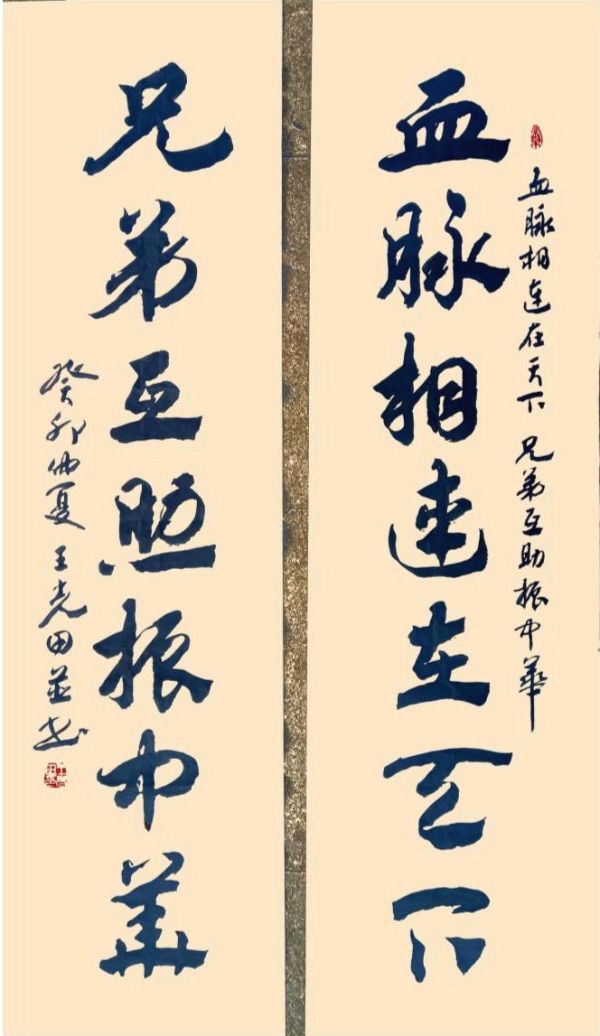 血脉相连在天下 兄弟互助振中华
血脉相連在天下
兄弟互助振中華
癸卯仲夏 王克田并书